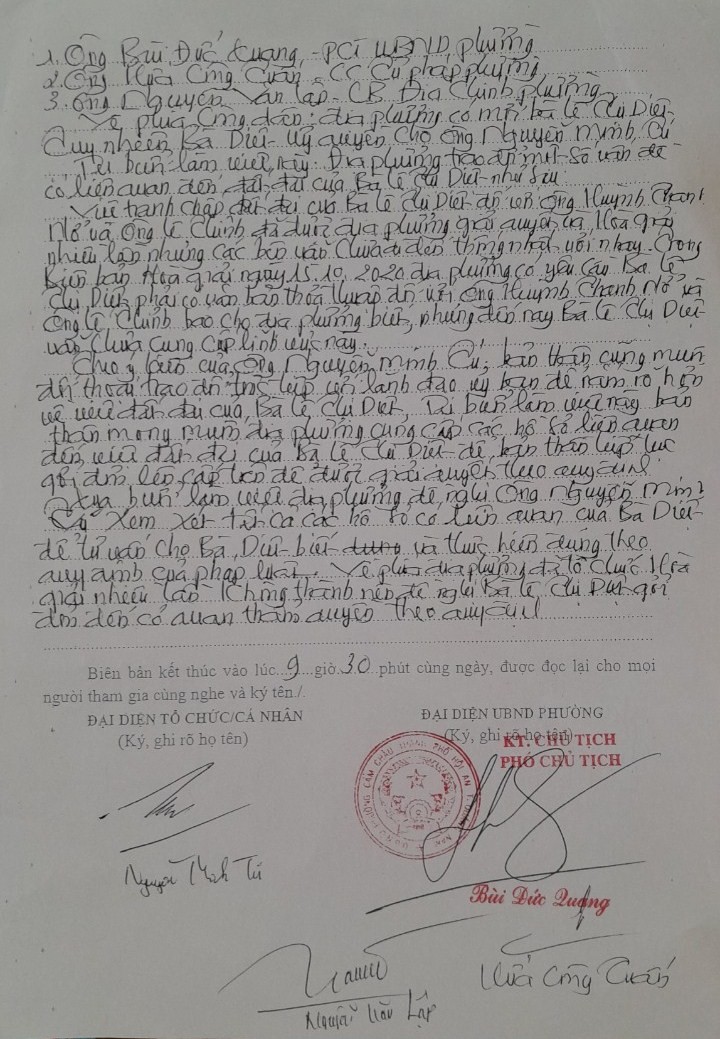 1. Ông Bùi Đức Quang, - PCT UBND phường
2. Ông Hứa Công Tuấn - CC Tư pháp phường
3. Ông Nguyễn Văn Lập - CB Địa Chính phường
Về phía Công dân: địa phương có mời bà Lê Thị Diệt
Tuy nhiên Bà Diệt uỷ quyền cho Ông Nguyễn Minh Tú
Tại buổi làm việc này. Địa phương trao đổi một số vấn đề
có liên quan đến đất đai của Bà Lê Thị Diệt như sau
Việc tranh chấp đất đai của Bà Lê Thị Diệt đối với Ông Huỳnh Chanh
Nở và Ông Lê Chinh đã được địa phương giải quyết và Hòa giải
nhiều lần nhưng các bên vẫn Chưa đi đến thống nhất với nhau. Trong
Biên bản Hoà giải ngày 15.10.2020 địa phương có yêu cầu Bà Lê
Thị Diệt phải có văn bản thỏa thuận đối với Ông Huỳnh Chanh Nở và
Ông Lê Chinh báo cho địa phương biết, nhưng đến nay Bà Lê Thị Diệt
vẫn Chưa Cung Cấp lĩnh vực này.
Theo ý kiến của Ông Nguyễn Minh Tú: bản thân cũng muốn
đối thoại trao đổi trực tiếp với lãnh đạo uỷ ban để nắm rõ hơn
về việc đất đai của Bà Lê Thị Diệt, Tại buổi làm việc này bản
thân mong muốn địa phương cung cấp các hồ sơ liên quan
đến việc đất đai của Bà Lê Thị Diệt để bản thân tiếp tục
gởi đơn lên cấp trên để được giải quyết theo quy định
Qua buổi làm việc địa phương đề nghị Ông Nguyễn Minh
Tú xem xét tất cả các hồ sơ có liên quan của Bà Diệt
để tư vấn cho Bà Diệt biết và thực hiện đúng theo
quy định của pháp luật. Về phía địa phương đã tổ chức Hòa
giải nhiều lần Không thành nên đề nghị Bà Lê Thị Diệt gởi
đơn đến cơ quan thẩm quyền theo quy định
Biên bản kết thúc vào lúc 9 giờ 30 phút cùng ngày, được đọc lại cho mọi
người tham gia cùng nghe và ký tên./.
ĐẠI DIỆN TỔ CHỨC/CÁ NHÂN ĐẠI DIỆN UBND PHƯỜNG
(Ký, ghi rõ họ tên) (Ký, ghi rõ họ tên)
KT. CHỦ TỊCH
PHÓ CHỦ TỊCH
Nguyễn Minh Tú
Bùi Đức Quang
Hứa Công Tuấn
Nguyễn Văn Lập